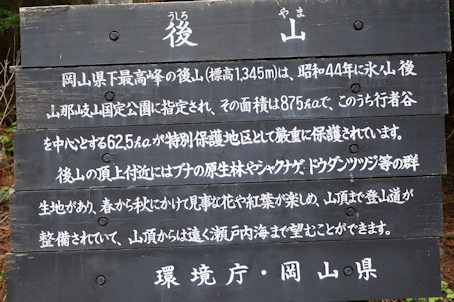 うしろ やま
後山
岡山県下最高峰の後山(標高1,345m)は、昭和44年に氷ノ山後
山那岐山国定公園に指定され、その面積は875haで、このうち行者谷
を中心とする62.5haが特別保護地区として厳重に保護されています。
後山の頂上付近にはブナの原生林やシャクナゲ、ドウダンツツジ等の群
生地があり、春から秋にかけて見事な花や紅葉が楽しめ、山頂まで登山道が
整備されていて、山頂からは遠く瀬戸内海まで望むことができます。
環境庁・岡山県